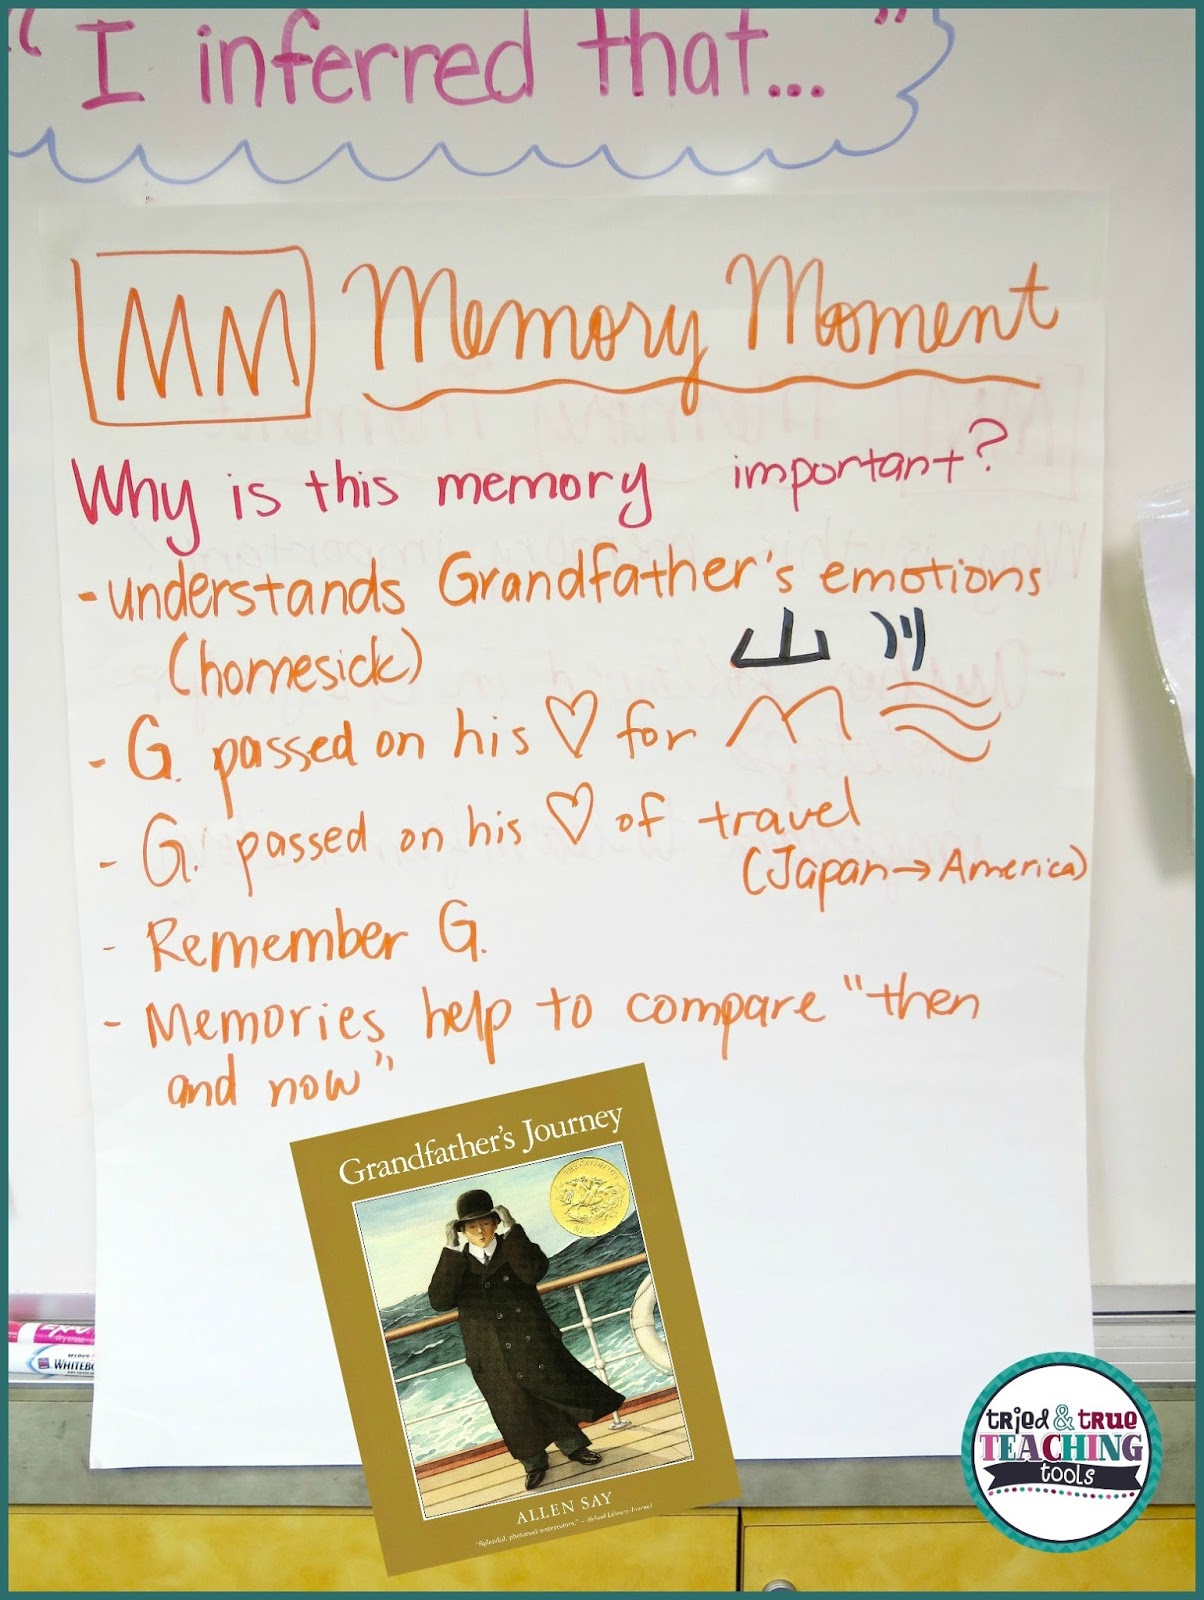 " I inferred that... "
MM Memory Moment
Why is this memory important?
- understands Grandfather's emotions
(homesick)
山 川
- G. passed on his ♡ for
- G. passed on his ♡ of travel
(Japan → America)
- Remember G.
- Memories help to compare "then
and now"
Grandfather's Journey
ALLEN SAY
"Splendid, photoreal watercolors." — School Library Journal
EXPO
dry erase
WHITEBO
tried & true
TEACHING
tools